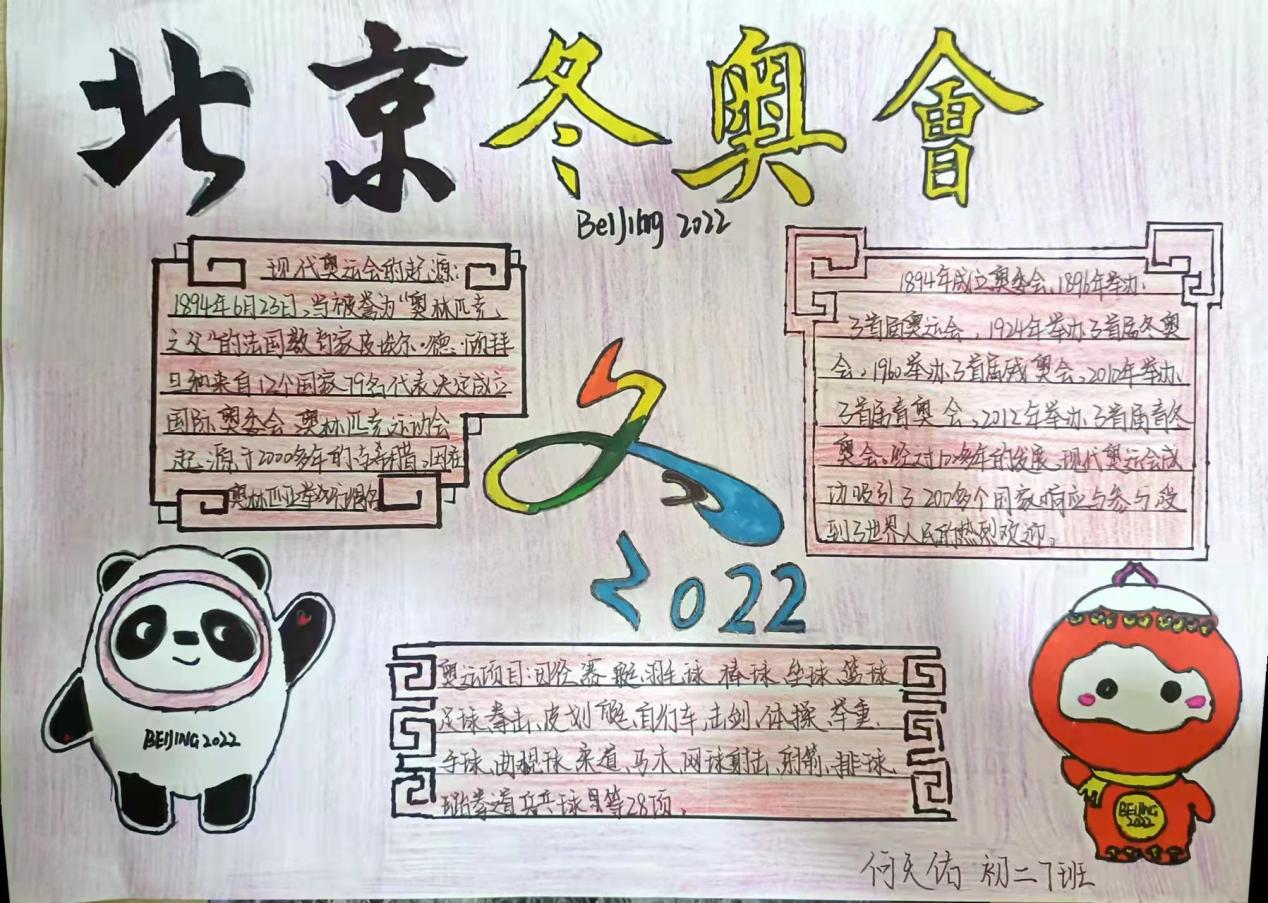 北京冬奥會
Beijing 2022
现代奥运会的起源:
1894年6月23日,当被誉为“奥林匹克
之父”的法国教育家皮埃尔·德·顾拜
旦和来自12个国家79名代表决定成立
国际奥委会.奥林匹克运动会
起源于2000多年的古希腊,因在
奥林匹亚举行
1894年成立奥委会,1896年举办
了首届奥运会,1924年举办了首届冬奥
会,1960举办了首届残奥会,2010年举办
了首届青奥会,2012年举办了首届青冬
奥会。经过100多年的发展,现代奥运会成
功吸引了200多个国家响应与参与,受
到了世界人民的热烈欢迎。
2022
奥运项目:田径、赛艇、羽毛球、棒球、垒球、篮球、
足球、拳击、皮划艇、自行车、击剑、体操、举重、
手球、曲棍球、柔道、马术、网球、射击、射箭、排球、
跆拳道、乒乓球等28项。
BEIJING 2022
BEIJING
2022
何天佑 初二7班